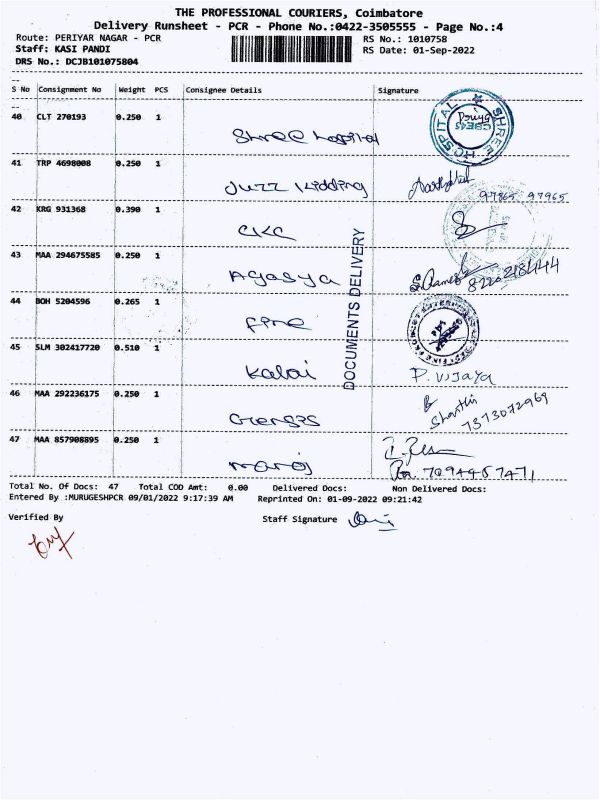 THE PROFESSIONAL COURIERS, Coimbatore
Delivery Runsheet - PCR - Phone No.:0422-3505555 - Page No.:4
Route: PERIYAR NAGAR - PCR RS No.: 1010758
Staff: KASI PANDI RS Date: 01-Sep-2022
DRS No.: DCJB101075804
S No Consignment No Weight PCS Consignee Details Signature
40 CLT 270193 0.250 1 Shree hospital
SHREE HOSPITAL
41 TRP 4698008 0.250 1 Juzz Kidding
97865 97965
42 KRG 931368 0.390 1 CKC
43 MAA 294675585 0.250 1 Agasya
44 BOH 5204596 0.265 1 Fine
45 SLM 302417720 0.510 1 Kalai P. Vijaya
46 MAA 292236175 0.250 1 Shanthi
7373072969
47 MAA 857908895 0.250 1
7094457471
DOCUMENTS DELIVERY
Total No. Of Docs: 47 Total COD Amt: 0.00 Delivered Docs: Non Delivered Docs:
Entered By :MURUGESHPCR 09/01/2022 9:17:39 AM Reprinted On: 01-09-2022 09:21:42
Verified By Staff Signature